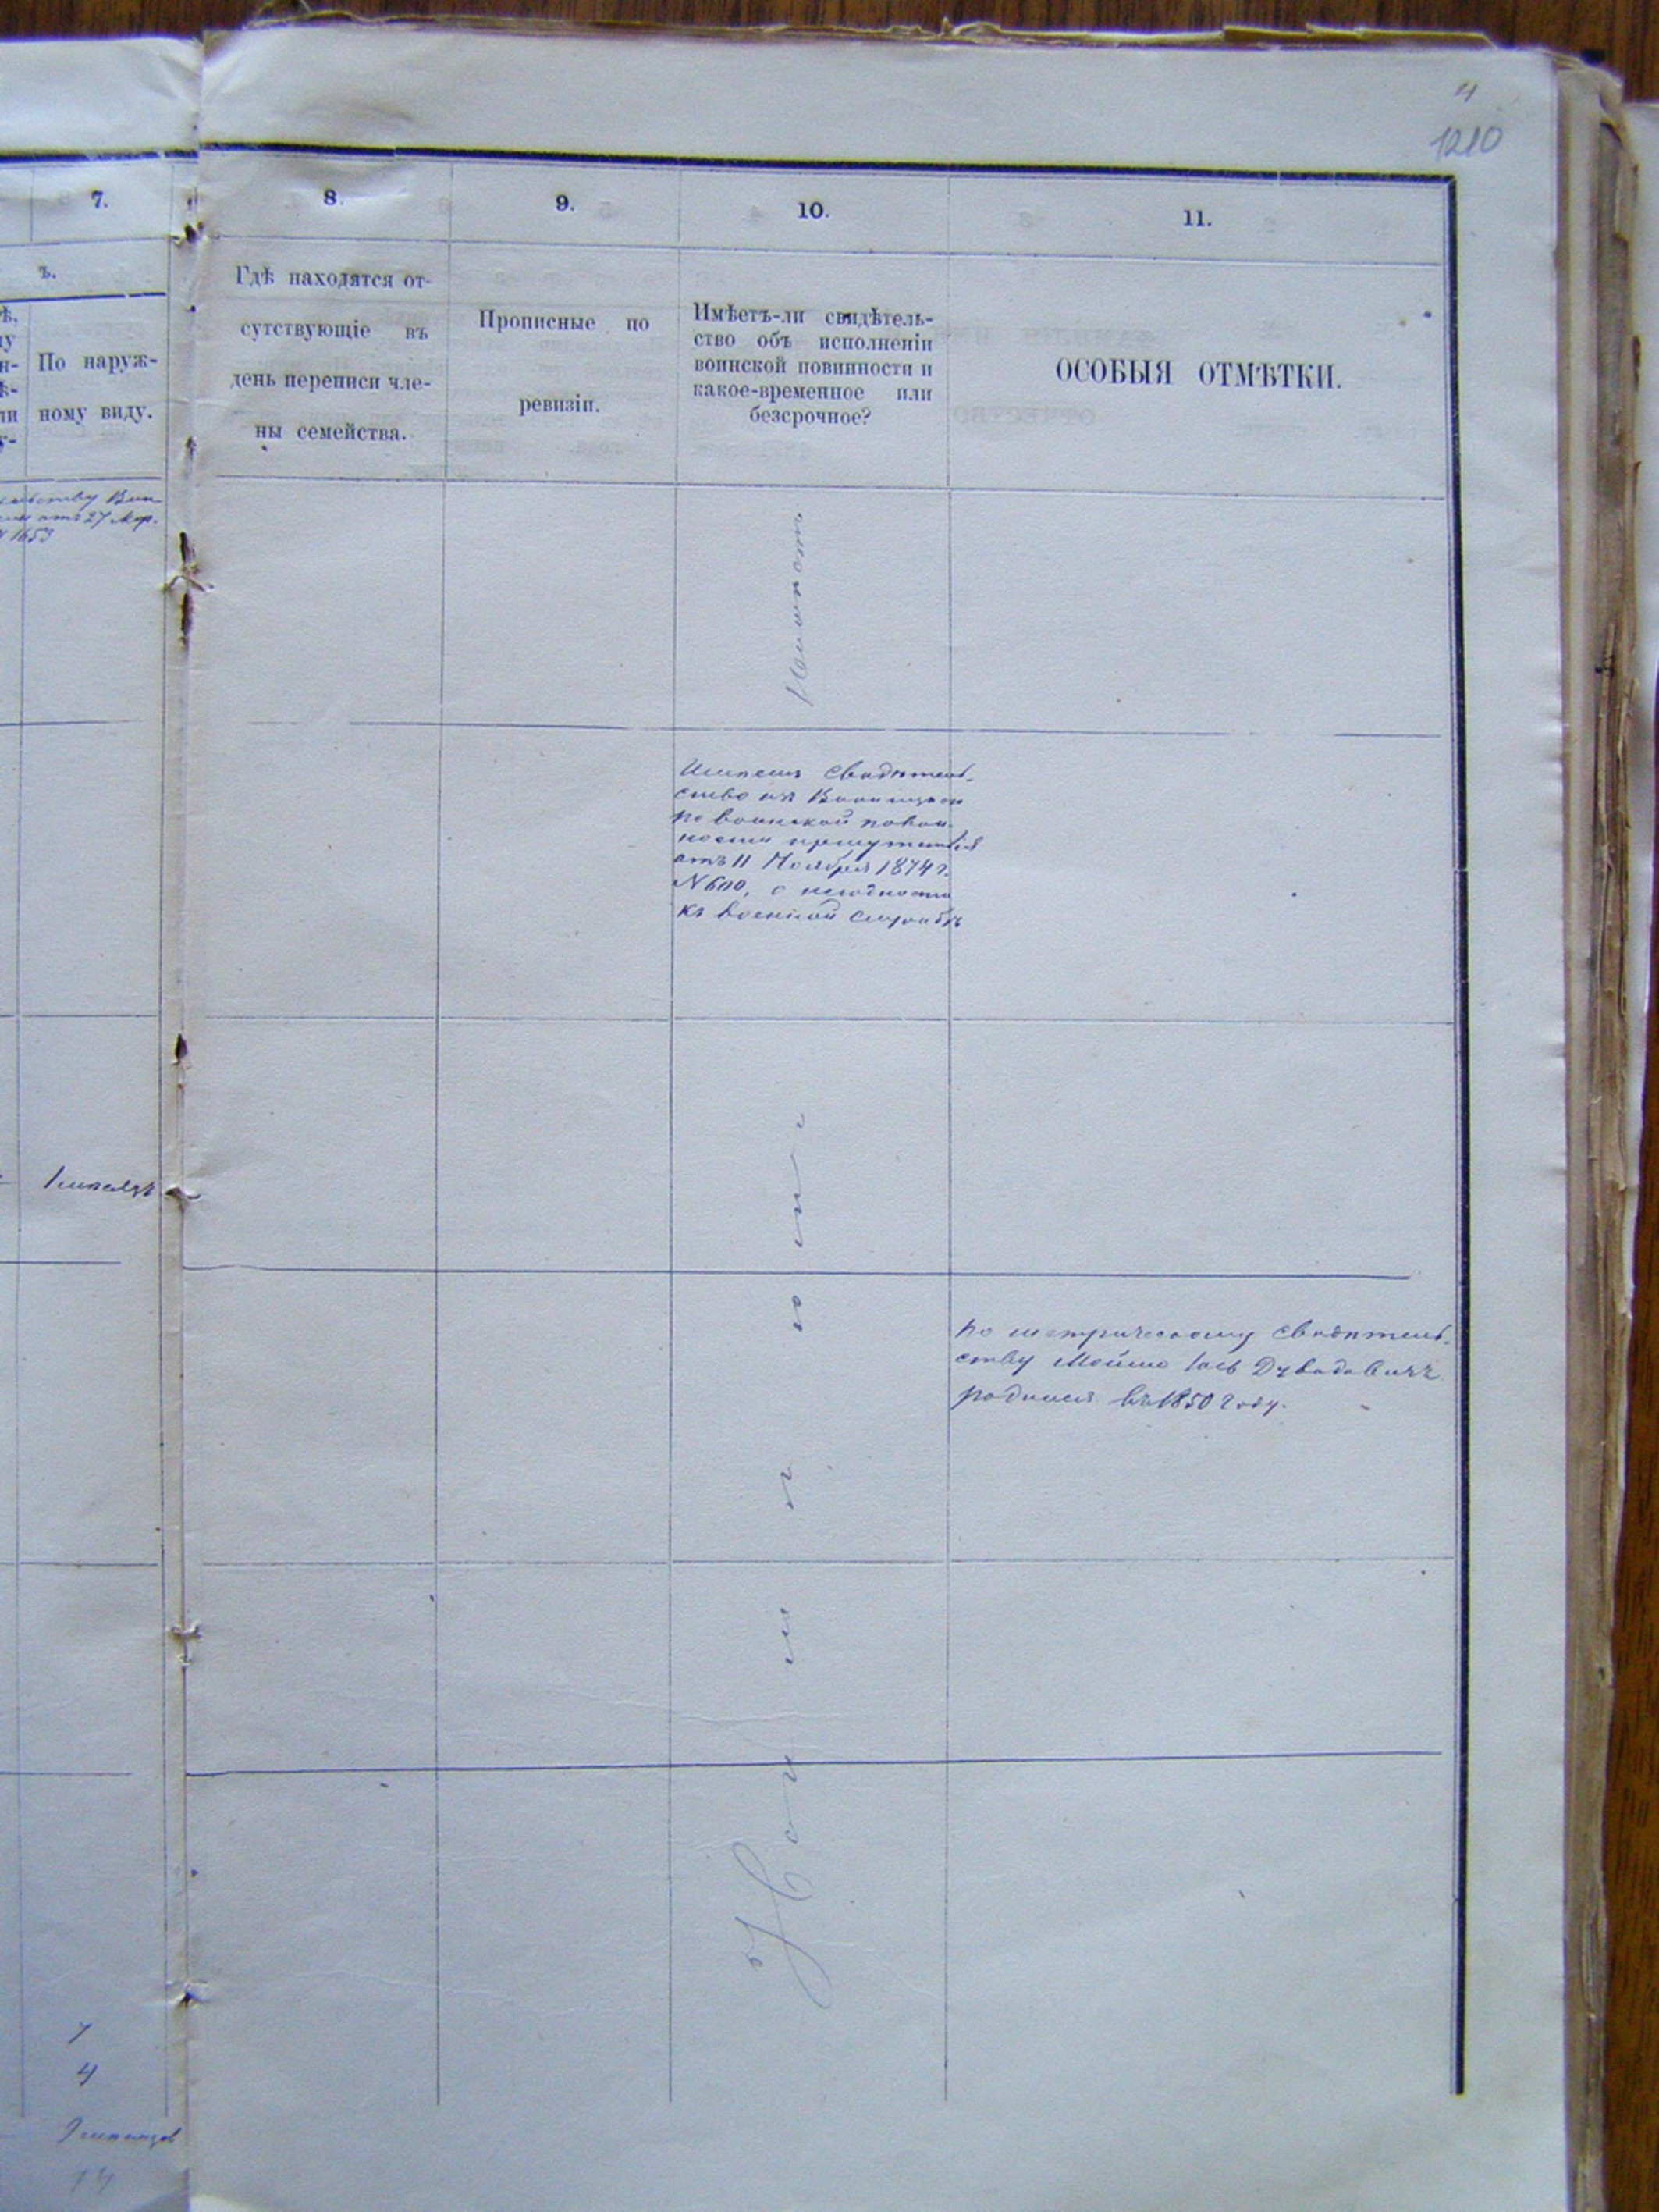 4
1210
7.
8.
9.
10.
11.
ъ.
По наруж-
ному виду.
Гдѣ находятся от-
сутствующіе въ
день переписи чле-
ны семейства.
Прописные по
ревизіи.
Имѣетъ-ли свидѣтель-
ство объ исполненіи
воинской повинности и
какое-временное или
безсрочное?
ОСОБЫЯ ОТМѢТКИ.
отъ 27 Мар.
№ 1653
Имѣетъ свидѣтель-
ство изъ Винницкаго
по воинской повин-
ности присутствія
отъ 11 Ноября 1874 г.
№ 600, о негодности
къ военной службѣ
1 мѣсяцъ
По метрическому свидѣтель-
ству Мойше
родился въ 1850 году.
7
4
14